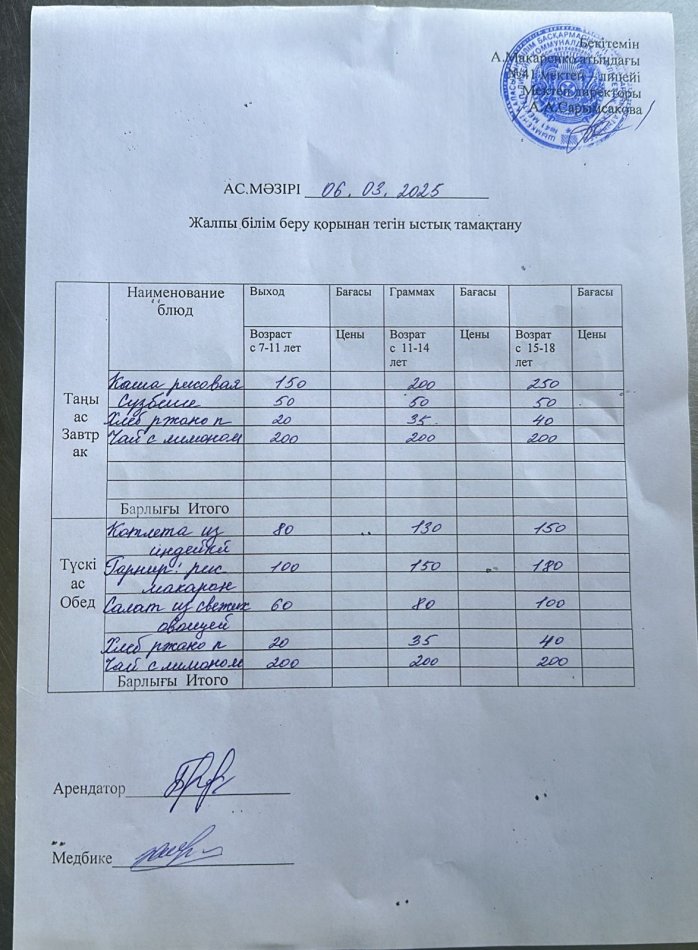 Бекітемін
А.Макаренко атындағы
№41 мектеп – лицейі
Мектеп директоры
А.А.Сарымсакова
АС.МӘЗІРІ 06.03.2025
Жалпы білім беру қорынан тегін ыстық тамақтану
Наименование блюд Выход Бағасы Граммах Бағасы Бағасы
Возраст с 7-11 лет Цены Возрат с 11-14 лет Цены Возрат с 15-18 лет Цены
Таңы ас Завтр ак
Каша рисовая 150 200 250
Сузбеше 50 50 50
Хлеб ржано п 20 35 40
Чай с лимоном 200 200 200
Барлығы Итого
Түскі ас Обед
Котлета из 80 130 150
индейки
Гарнир: рис 100 150 180
макарон
Салат из свежих 60 80 100
овощей
Хлеб ржано п 20 35 40
Чай с лимоном 200 200 200
Барлығы Итого
Арендатор
Медбике